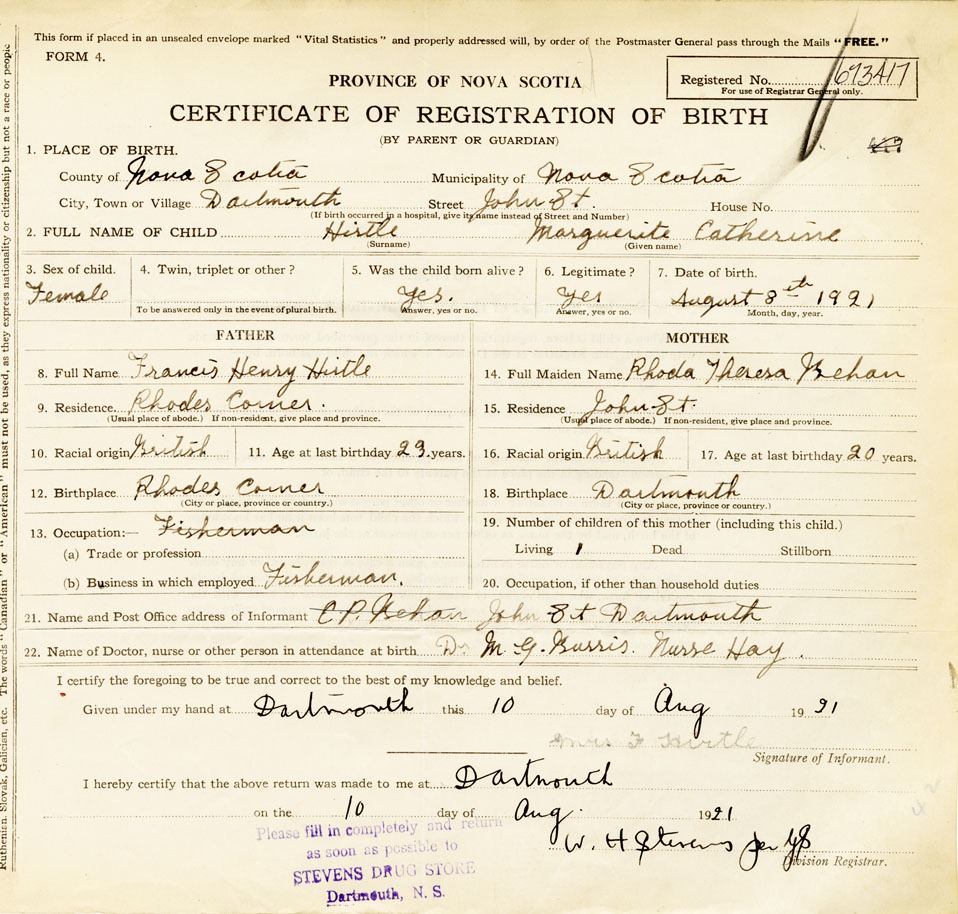 This form if placed in an unsealed envelope marked "Vital Statistics" and properly addressed will, by order of the Postmaster General pass through the Mails "FREE."
FORM 4.
PROVINCE OF NOVA SCOTIA
Registered No. 693417
For use of Registrar General only.
CERTIFICATE OF REGISTRATION OF BIRTH
(BY PARENT OR GUARDIAN)
1. PLACE OF BIRTH.
County of Nova Scotia Municipality of Nova Scotia
City, Town or Village Dartmouth Street John St. House No.
(If birth occurred in a hospital, give its name instead of Street and Number)
2. FULL NAME OF CHILD Hirtle Marguerite Catherine
(Surname) (Given name)
3. Sex of child. 4. Twin, triplet or other? 5. Was the child born alive? 6. Legitimate? 7. Date of birth.
Female Yes. Yes August 8th 1921
To be answered only in the event of plural birth. Answer, yes or no. Answer, yes or no. Month, day, year.
FATHER MOTHER
8. Full Name Francis Henry Hirtle 14. Full Maiden Name Rhoda Theresa Behan
9. Residence Rhodes Corner. 15. Residence John St.
(Usual place of abode.) If non-resident, give place and province. (Usual place of abode.) If non-resident, give place and province.
10. Racial origin British 11. Age at last birthday 23. years. 16. Racial origin British 17. Age at last birthday 20 years.
12. Birthplace Rhodes Corner 18. Birthplace Dartmouth
(City or place, province or country.) (City or place, province or country.)
13. Occupation:— Fisherman 19. Number of children of this mother (including this child.)
(a) Trade or profession Living 1 Dead Stillborn
(b) Business in which employed Fisherman. 20. Occupation, if other than household duties
21. Name and Post Office address of Informant C.P. Behan John St Dartmouth
22. Name of Doctor, nurse or other person in attendance at birth Dr M. G. Burris. Nurse Hay.
I certify the foregoing to be true and correct to the best of my knowledge and belief.
Given under my hand at Dartmouth this 10 day of Aug 1921
Mrs F Hirtle
Signature of Informant.
I hereby certify that the above return was made to me at Dartmouth
on the 10 day of Aug. 1921
W. H Stevens
Division Registrar.
Please fill in completely and return
as soon as possible to
STEVENS DRUG STORE
Dartmouth, N. S.
Ruthenian, Slovak, Galician, etc. The words "Canadian" or "American" must not be used, as they express nationality or citizenship but not a race or people